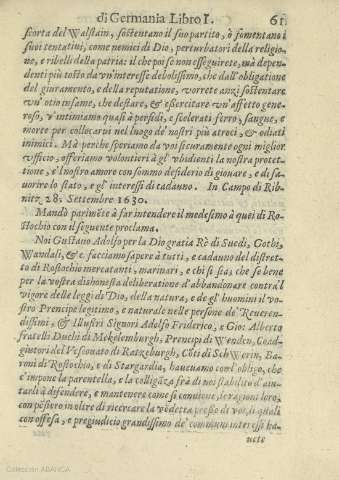 di Germania Libro I. 61
scorta del Walstain, sostentano il suo partito, ò fomentano i
suoi tentatini, come nemici di Dio, perturbatori della religio-
ne, e ribelli della patria: il che poi se non esseguirete, mà depen-
denti più tosto da vn'interesse debolissimo, che dall'obligatione
del giuramento, e della reputatione, vorrete anzi sostentare
vn'otio infame, che destare, & essercitare vn'affetto gene-
roso, v'intimiamo quasi à perfidi, e scelerati ferro, sangue, e
morte per collocarui nel luogo de' nostri più atroci, & odiati
inimici. Mà perche speriamo da voi sicuramente ogni miglior
vfficio, offeriamo volontieri à gl' vbidienti la nostra protet-
tione, e'l nostro amore con sommo desiderio di giouare, e di fa-
uorire lo stato, e gl' interessi di cadauno. In Campo di Rib-
nitz 28: Settembre 1630.
Mandò parimẽte à far intendere il medesimo à quei di Ro-
stochio con il seguente proclama.
Noi Gustauo Adolfo per la Dio gratia Rè di Suedi, Gothi,
Wandali, & c. facciamo sapere à tutti, e cadauno del distret-
to di Rostochio mercatanti, marinari, e chi si sia; che se bene
per la vostra dishonesta deliberatione d'abbandonare contra'l
vigore delle leggi di Dio, della natura, e de gl' huomini il vo-
stro Prencipe legitimo, e naturale nelle persone de' Reueren-
dissimi, & Illustri Signori Adolfo Friderico, e Gio: Alberto
fratelli Duchi di Mekelemburgh, Prencipi di Wenden, Coad-
giutori del Vescouato di Ratzeburgh, Cõti di SchWerin, Ba-
roni di Rostochio, e di Stargardia, haueuamo com' obligo, che
c'impone la parentella, e la colligãza frà di noi stabilita d'aiu-
tarli à difendere, e mantenere come si conuiene le ragioni loro,
con pẽsiero in oltre di ricercare la vẽdetta presso di voi, di quali
con offesa, e pregiudicio grandissimo de' communi interessi ha-
uete
Colección ABANCA